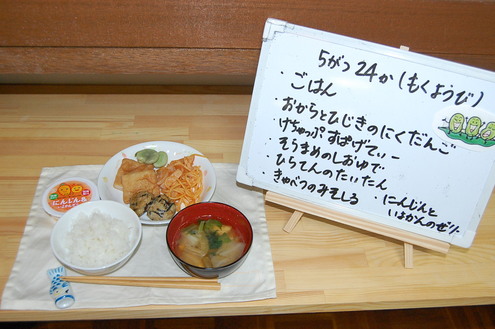 5がつ24か(もくようび)
・ごはん
・おからとひじきのにくだんご
・けちゃっぷすぱげてぃー
・そらまめのしおゆで
・ひらてんのたいたん
・きゃべつのみそしる
・にんじんと
いよかんのぜりー
にんじん&